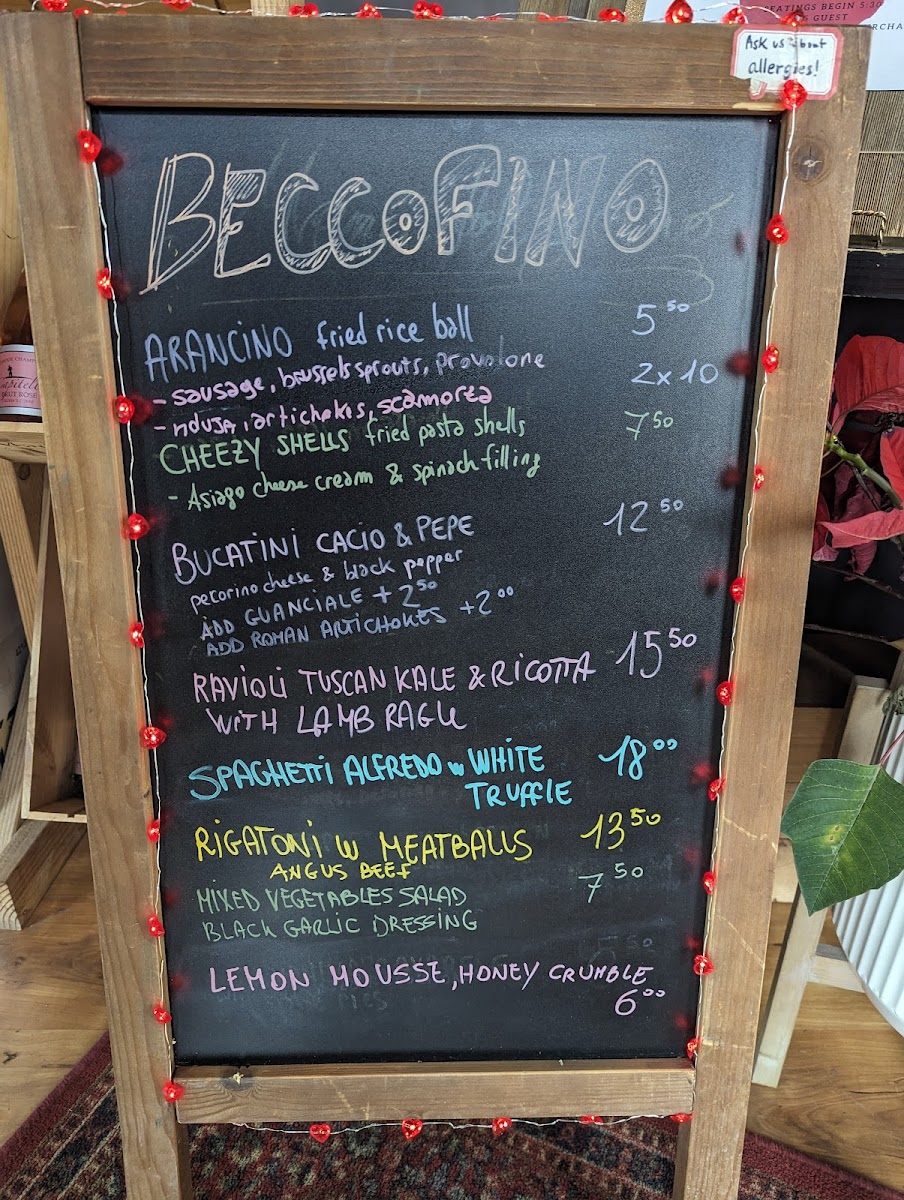 EATINGS BEGIN 5:30
GUEST
Ask us about
allergies!
BECCOFINO
ARANCINO fried rice ball 5 50
- sausage, brussels sprouts, provolone 2x10
- nduja, artichokes, scamorza
CHEEZY SHELLS fried pasta shells 7 50
- Asiago cheese cream & spinach filling
BUCATINI CACIO & PEPE 12 50
pecorino cheese & black pepper
ADD GUANCIALE + 2 50
ADD ROMAN ARTICHOKES +2 00
RAVIOLI TUSCAN KALE & RICOTTA 15 50
WITH LAMB RAGU
SPAGHETTI ALFREDO w WHITE 18 00
TRUFFLE
RIGATONI w MEATBALLS 13 50
ANGUS BEEF
MIXED VEGETABLES SALAD 7 50
BLACK GARLIC DRESSING
LEMON MOUSSE, HONEY CRUMBLE
6 00